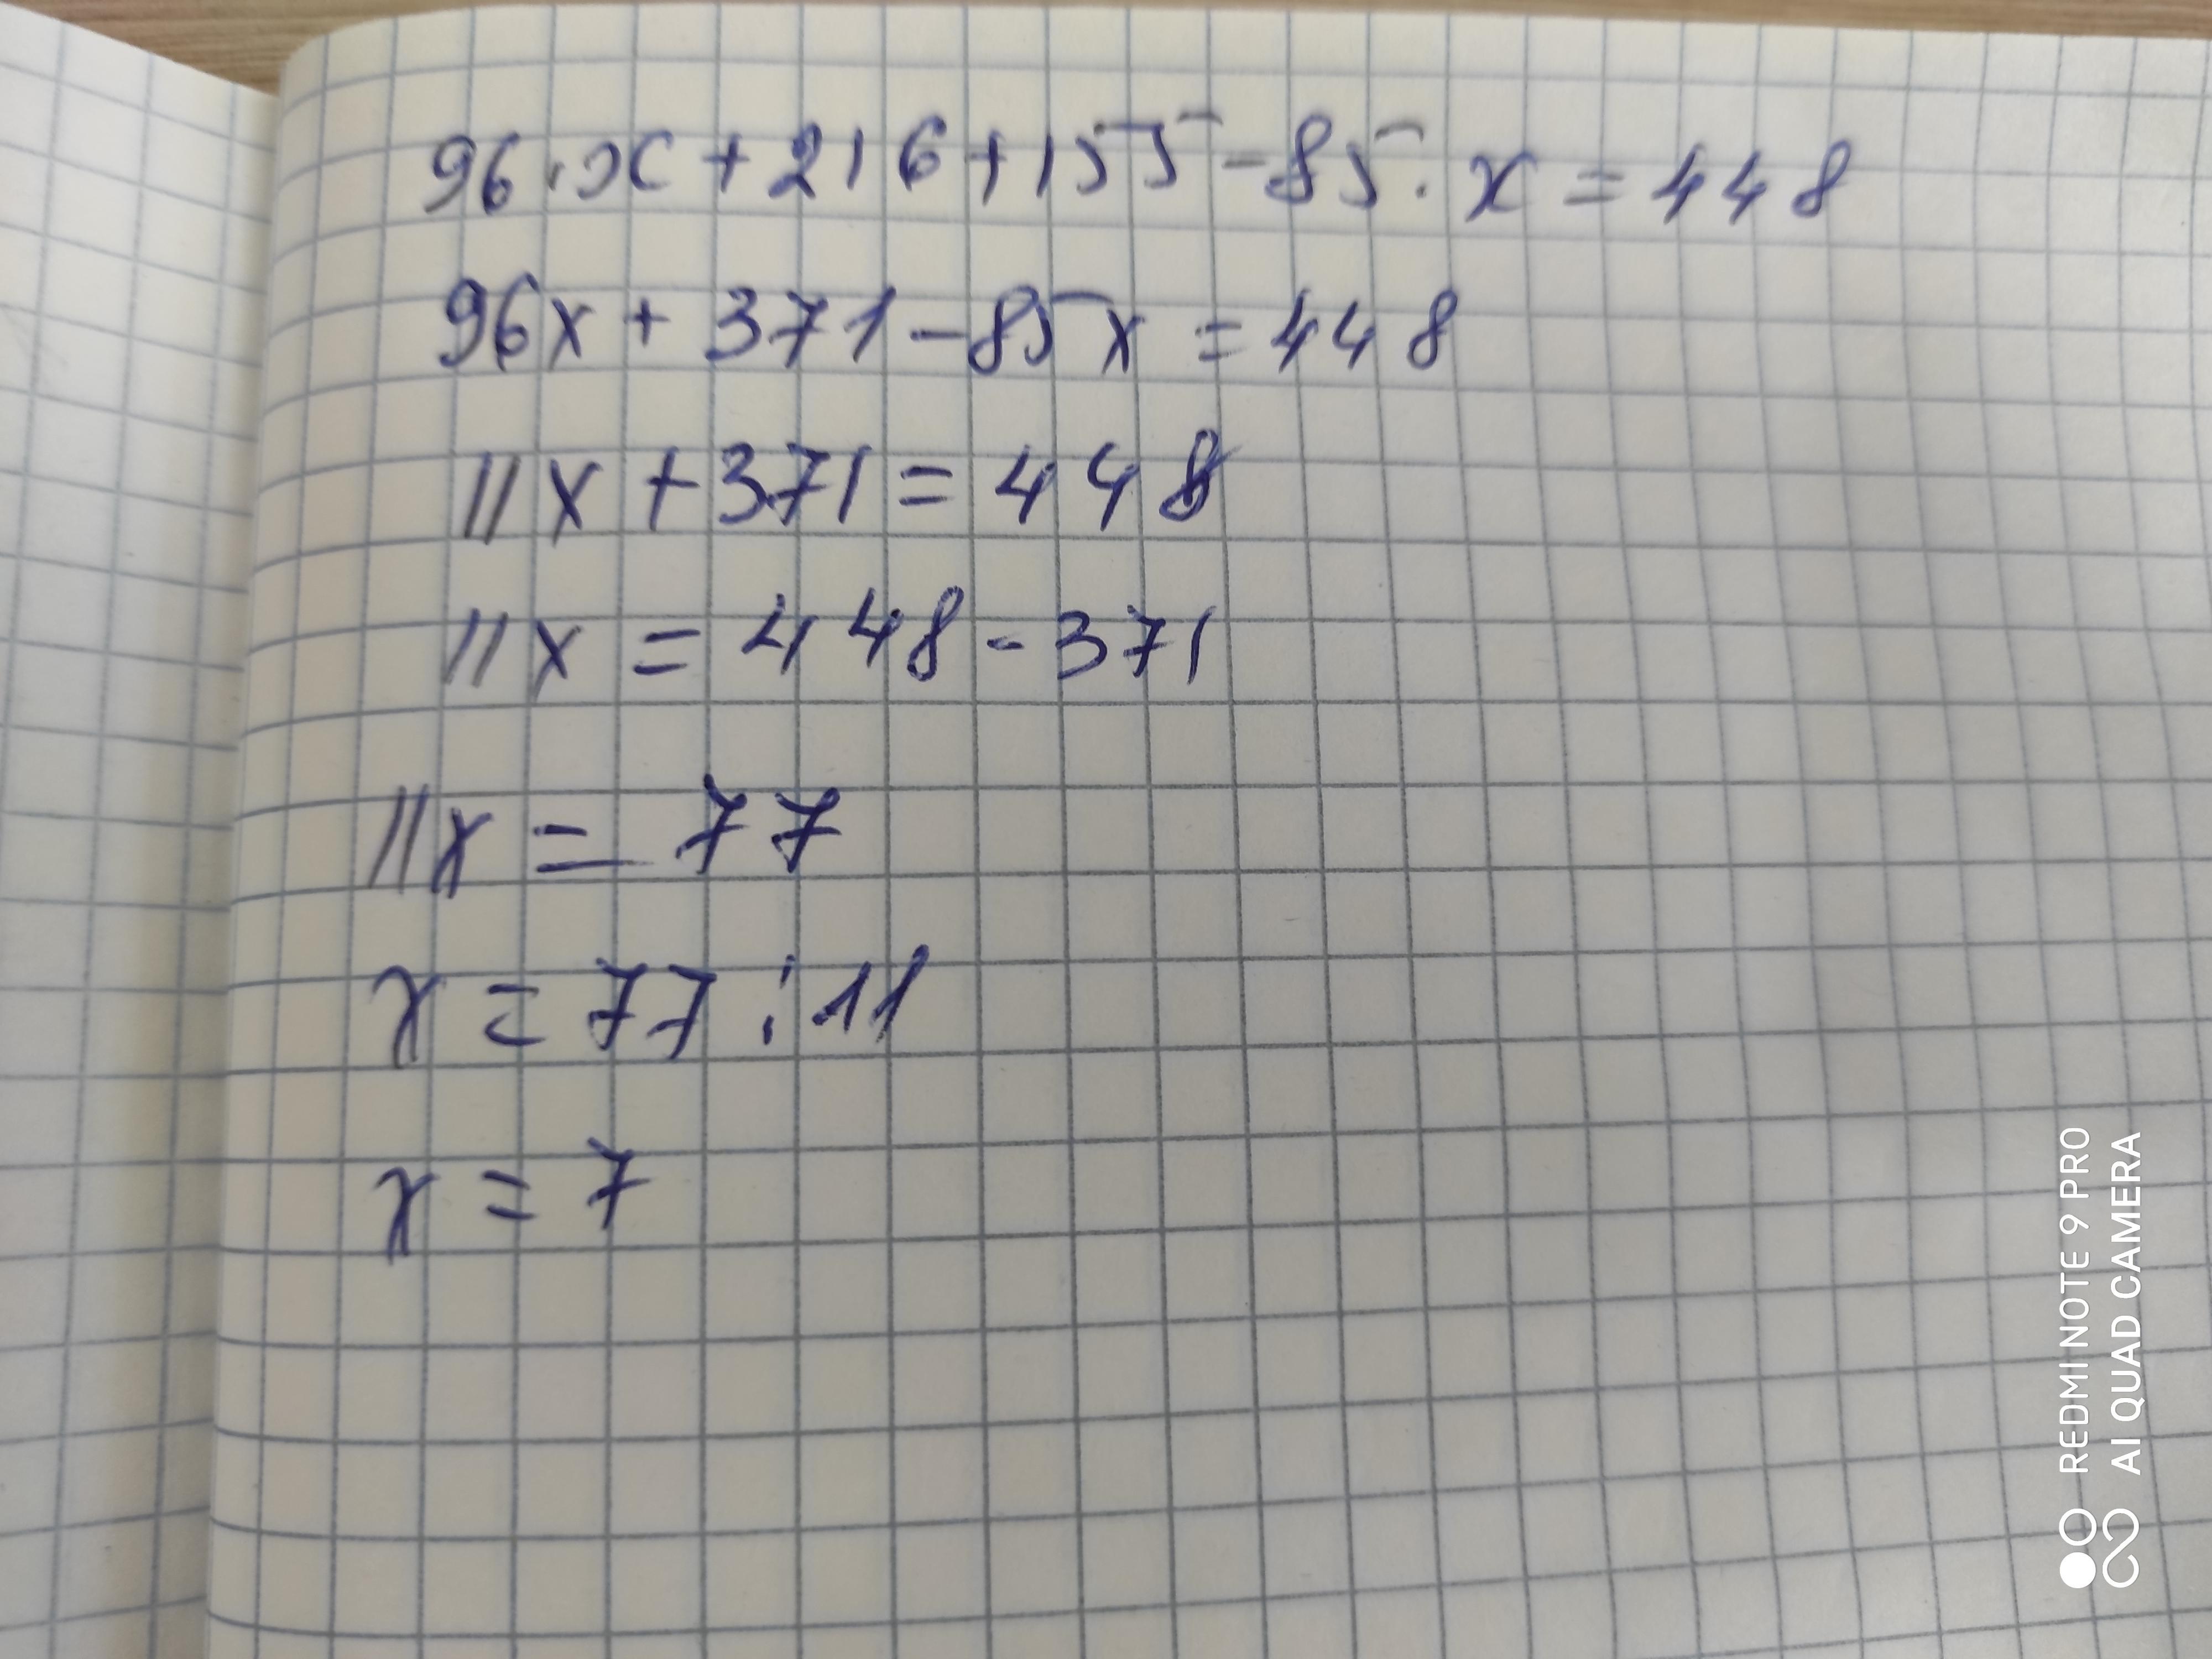 96·x+216+155-85·x=448
96x+371-85x=448
11x+371=448
11x=448-371
11x=77
x=77:11
x=7
REDMI NOTE 9 PRO
AI QUAD CAMERA